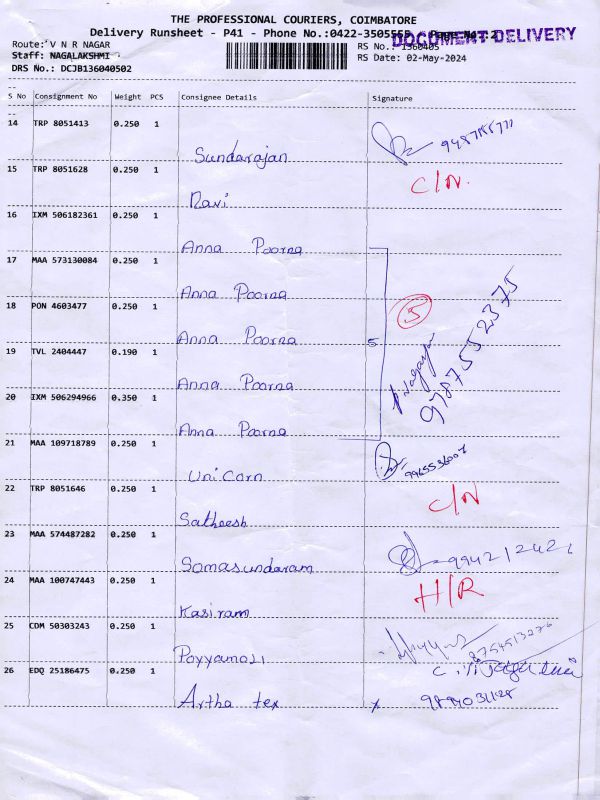 THE PROFESSIONAL COURIERS, COIMBATORE
Delivery Runsheet - P41 - Phone No.:0422-3505555 Page No.:2
DOCUMENT DELIVERY
Route: V N R NAGAR RS No.: 1360405
Staff: NAGALAKSHMI RS Date: 02-May-2024
DRS No.: DCJB136040502
S No Consignment No Weight PCS Consignee Details Signature
14 TRP 8051413 0.250 1
Sundarajan
15 TRP 8051628 0.250 1 C/N.
Ravi
16 IXM 506182361 0.250 1
Anna Poorna
17 MAA 573130084 0.250 1
Anna Poorna
18 PON 4603477 0.250 1 5
Anna Poorna 5
19 TVL 2404447 0.190 1
Anna Poorna
9787552375
20 IXM 506294966 0.350 1
Anna Poorna
21 MAA 109718789 0.250 1
UniCorn 9965536007
22 TRP 8051646 0.250 1 C/N
Satheesh
23 MAA 574487282 0.250 1
Somasundaram
24 MAA 100747443 0.250 1 H/R
Kasiram
25 CDM 50303243 0.250 1
Poyyamoli 8754513276
26 EDQ 25186475 0.250 1
Artha tex x